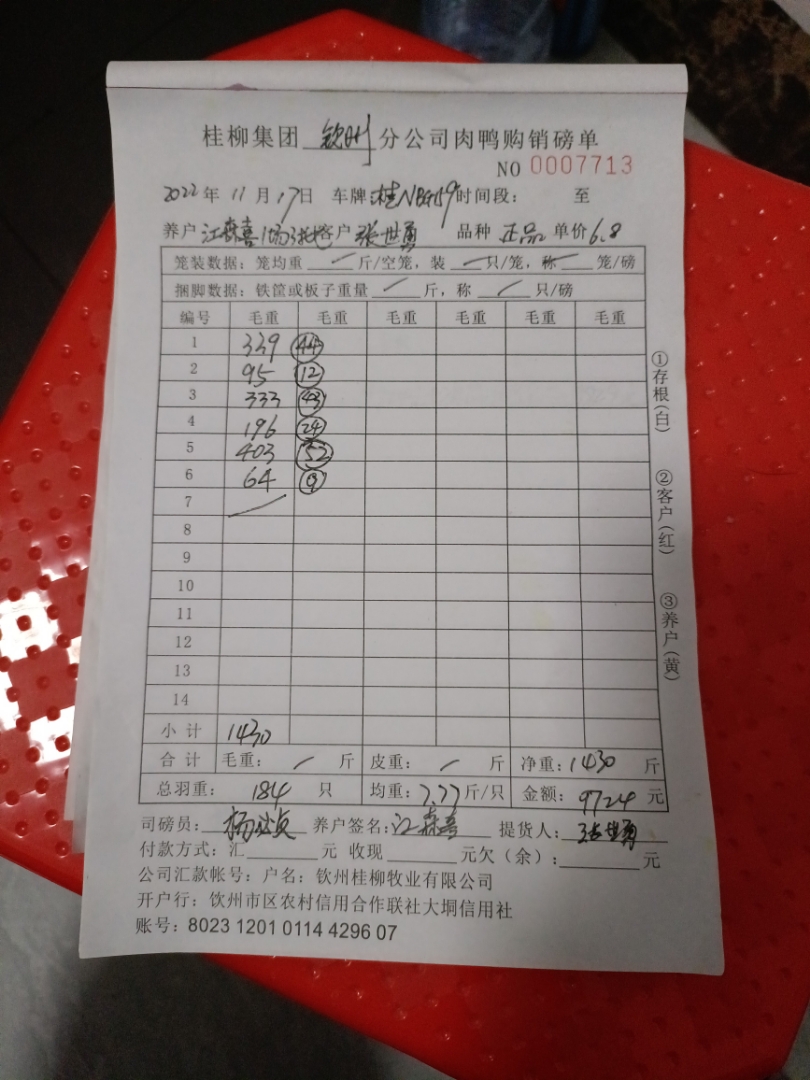 桂柳集团 钦州 分公司肉鸭购销磅单
NO 0007713
2022年 11月17日 车牌:桂N 时间段: 至
养户 江森喜 客户 张世勇 品种 正品 单价 6.8
笼装数据: 笼均重 / 斤/空笼, 装 / 只/笼, 称 / 笼/磅
捆脚数据: 铁筐或板子重量 / 斤, 称 / 只/磅
编号 毛重 毛重 毛重 毛重 毛重 毛重
1 339 44
2 95 12
3 333 43
4 196 24
5 403 52
6 64 9
7 /
8
9
10
11
12
13
14
小计 1430
合计 毛重: / 斤 皮重: / 斤 净重: 1430 斤
总羽重: 184 只 均重: 7.77 斤/只 金额: 9724 元
司磅员: 杨 贞 养户签名: 江森喜 提货人: 张世勇
付款方式: 汇 元 收现 元欠(余): 元
公司汇款帐号: 户名: 钦州桂柳牧业有限公司
开户行: 钦州市区农村信用合作联社大垌信用社
账号: 8023 1201 0114 4296 07
①存根(白)
②客户(红)
③养户(黄)